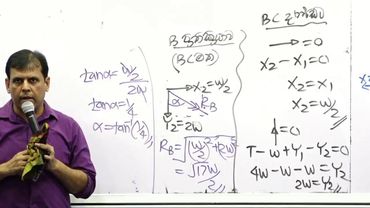 tanα = W/2 / 2W
tanα = 1/4
α = tan⁻¹(1/4)
B
(BC මත)
X₂ = W/2
α
R
B
Y₂ = 2W
R_B = √(W/2)² + (2W)²
= √17 W
BC
→ = 0
X₂ - X₁ = 0
X₂ = X₁
X₂ = W/2
↑ = 0
T - W + Y₁ - Y₂ = 0
4W - W - W = Y₂
2W = Y₂